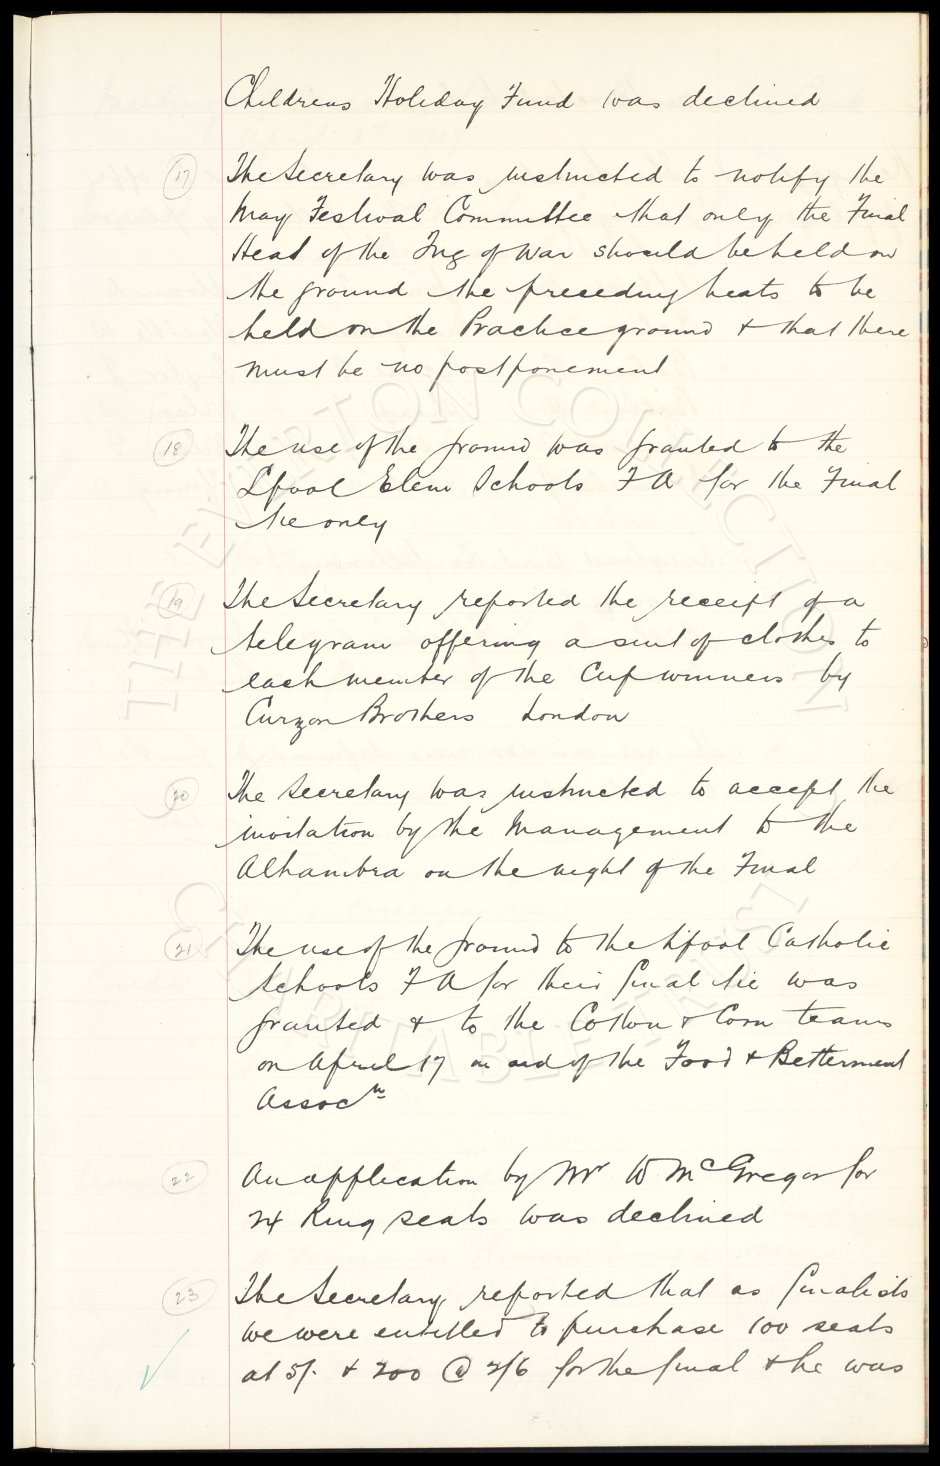 Childrens Holiday Fund was declined
17 The Secretary was instructed to notify the
May Festival Committee that only the Final
Heat of the Tug of War should be held on
the ground the preceding heats to be
held on the Practice ground & that there
must be no postponement
18 The use of the ground was granted to the
Lpool Elem Schools F A for the Final
tie only
19 The Secretary reported the receipt of a
telegram offering a suit of clothes to
each member of the Cup winners by
Curzon Brothers London
20 The Secretary was instructed to accept the
invitation by the Management to the
Alhambra on the night of the Final
21 The use of the ground to the Lpool Catholic
Schools F A for their final tie was
granted & to the Cotton & Corn teams
on April 17 in aid of the Food & Betterment
Assocn
22 An application by Mr W McGregor for
24 Ring seats was declined
23 The Secretary reported that as finalists
we were entitled to purchase 100 seats
at 5/- & 200 @ 2/6 for the final & he was
THE EVERTON COLLECTION
CHARITABLE TRUST